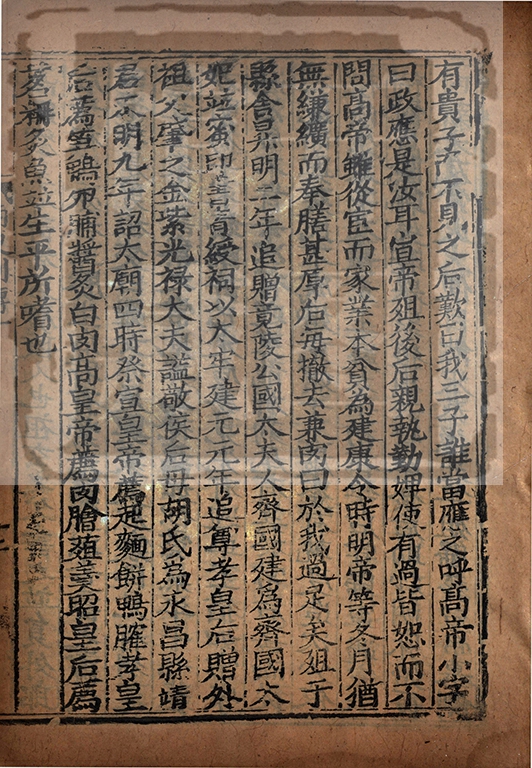 有貴子而不見之后歎曰我三子誰當應之呼高帝小字
曰政應是汝耳宣帝殂後后親執勤婢使有過皆恕而不
問高帝雖從宦而家業本貧為建康令時明帝等冬月猶
無縑纊而奉膳甚厚后每撤去兼肉曰於我過足矣殂于
縣舍昇明二年追贈竟陵公國太夫人齊國建為齊國太
妃並蜜印畫青綬祠以太牢建元元年追尊孝皇后贈外
祖父肇之金紫光禄大夫謚敬侯后母胡氏為永昌縣靖
君永明九年詔太廟四時祭宣皇帝薦起麵餅鴨臛孝皇
后薦笋鴨卵脯醬炙白肉高皇帝薦肉膾葅羹昭皇后薦
茗粣炙魚並生平所嗜也